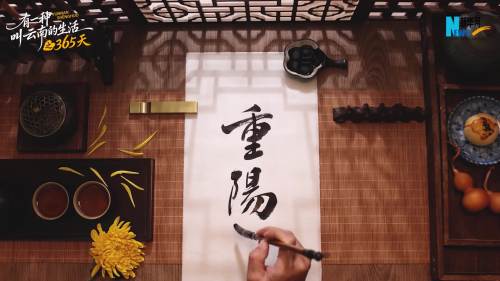 有一种
叫云南的生活
之365天
重
陽